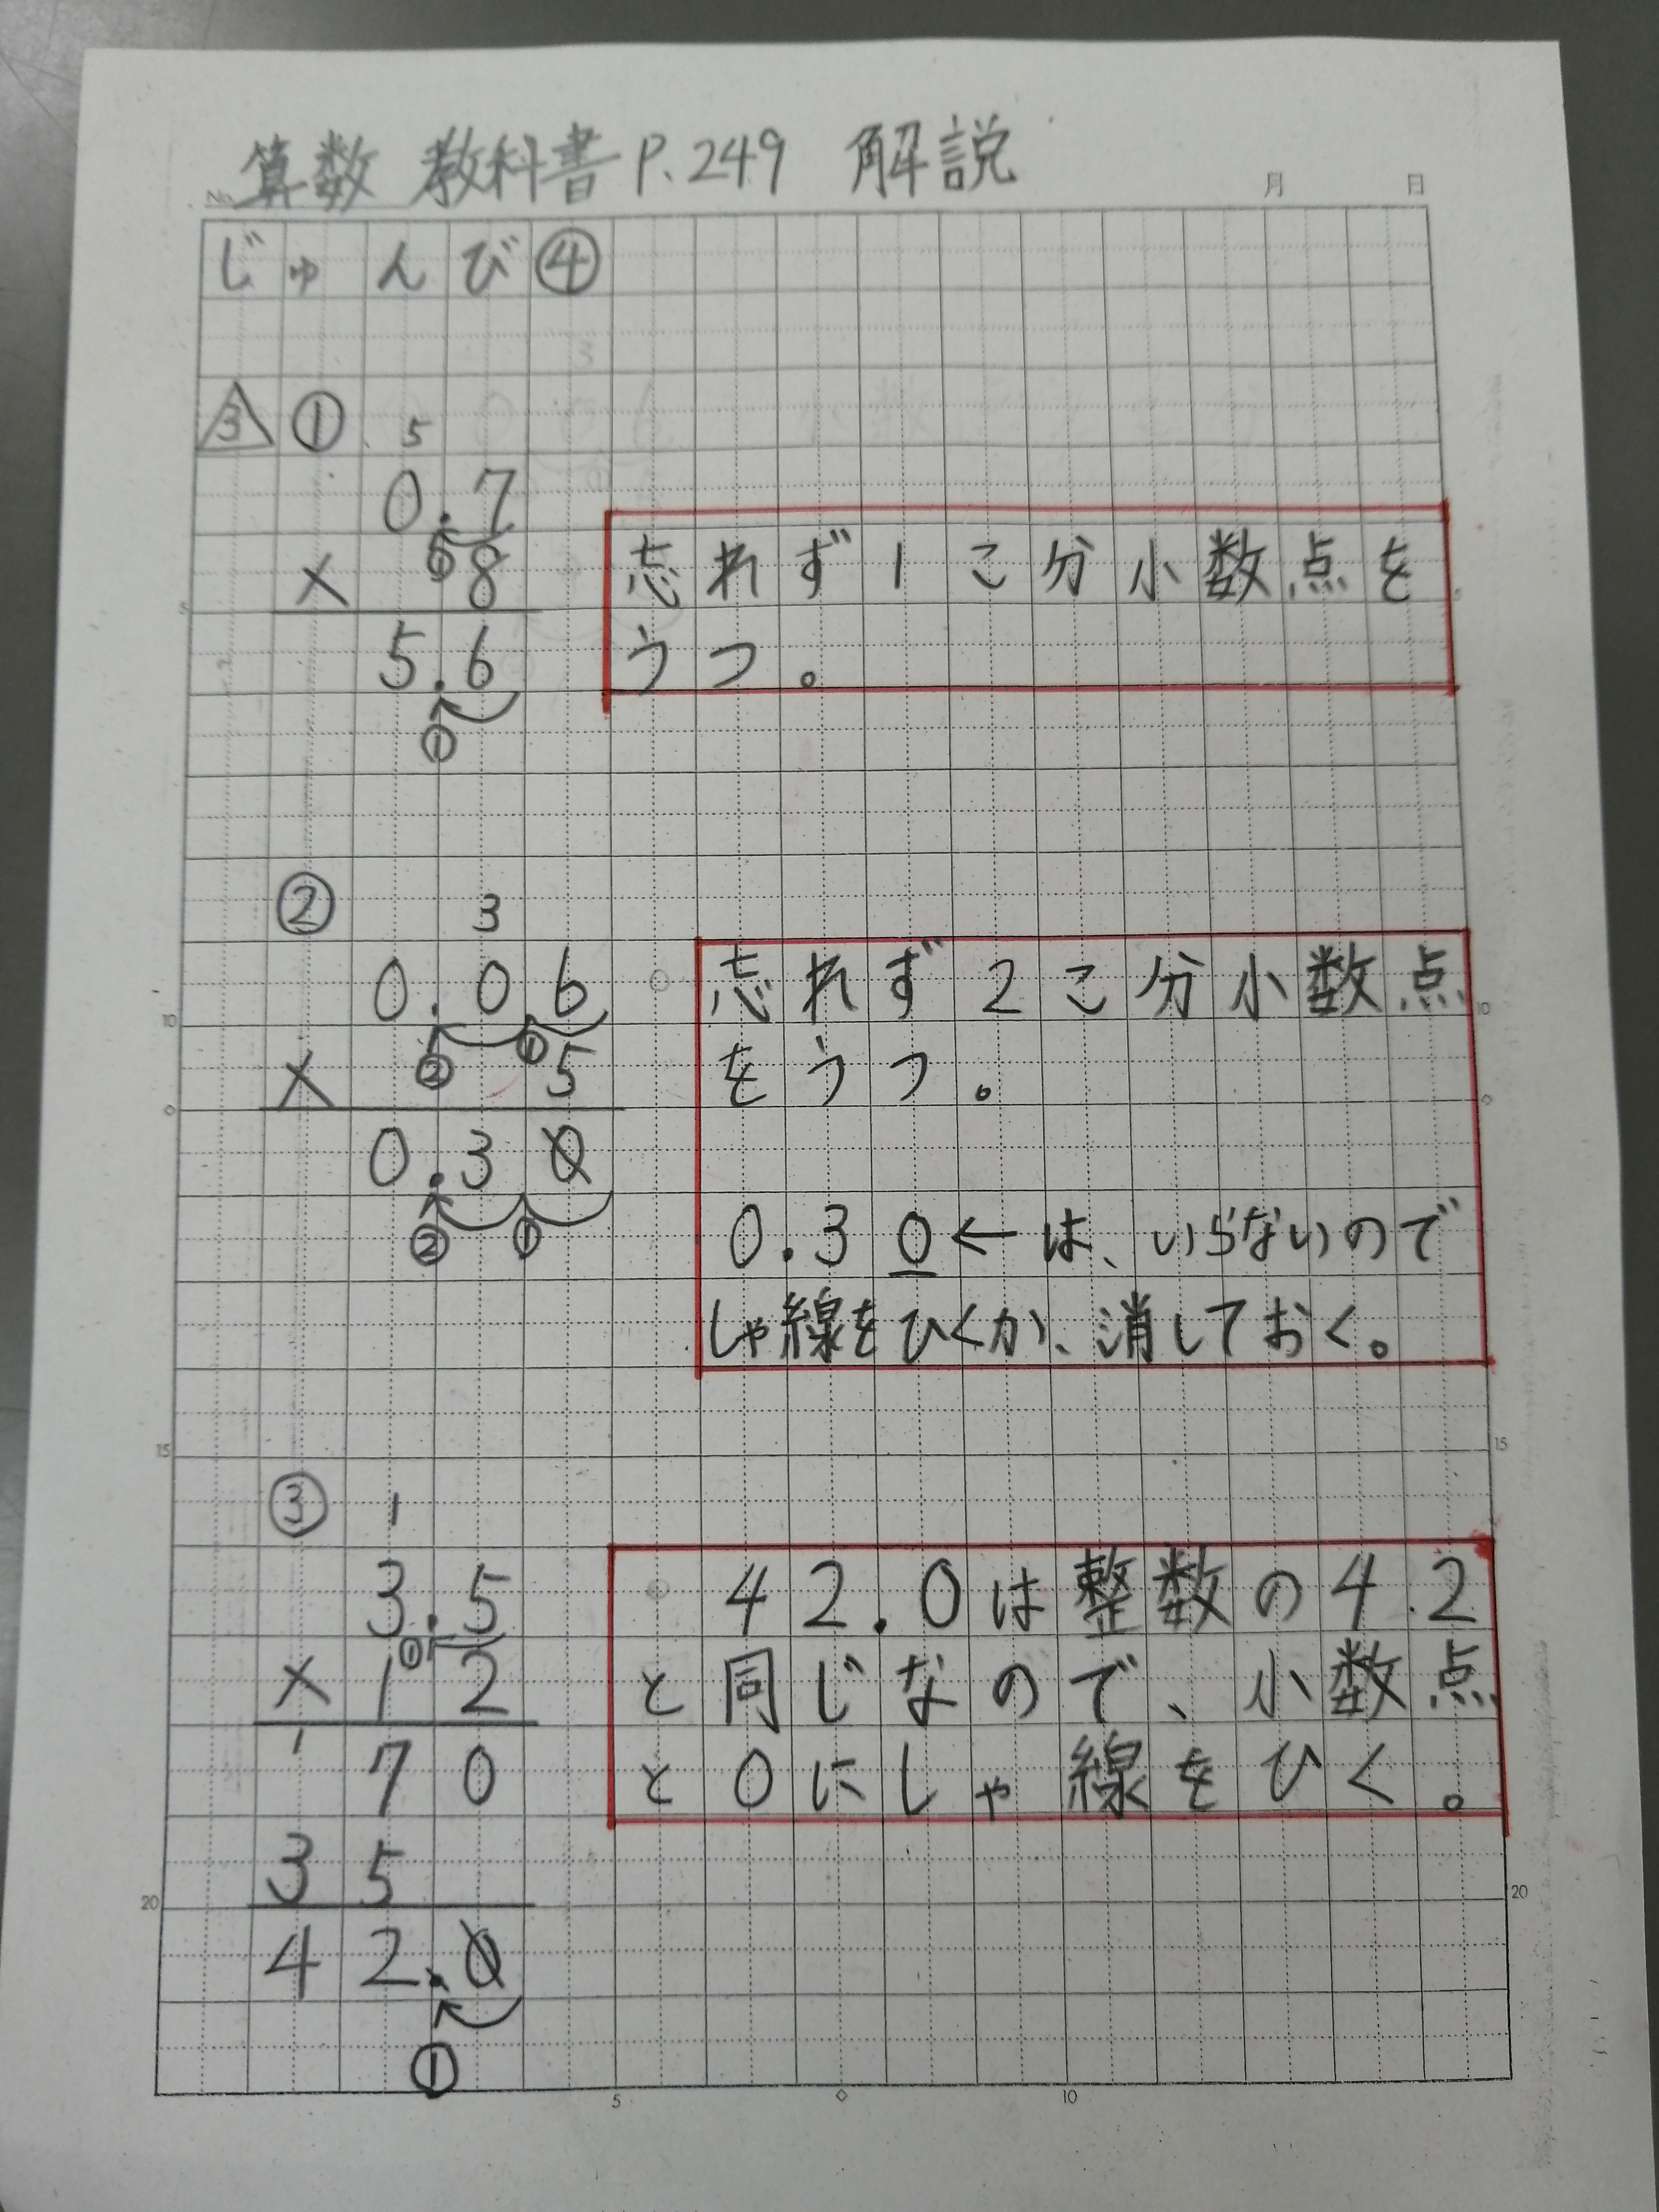 算数 教科書P.249 解説
No.
月 日
じゅんび④
3 ① 5
0.7
① 
× 8
5.6
①
忘れず1こ分小数点を
うつ。
② 3
0.06
② ①
× 5
0.30
② ①
忘れず2こ分小数点
をうつ。
0.30←は、いらないので
しゃ線をひくか、消しておく。
③ 1
3.5
①
× 12
1
70
35
42.0
①
42.0は整数の42
と同じなので、小数点
と0にしゃ線をひく。
5
10
10
15
15
20
20
5 10